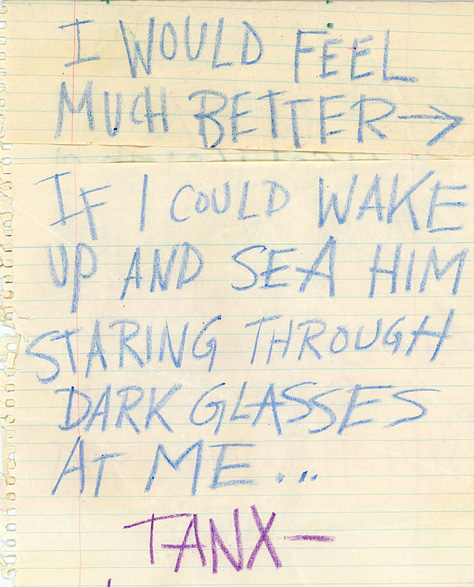 I WOULD FEEL
MUCH BETTER→
IF I COULD WAKE
UP AND SEA HIM
STARING THROUGH
DARK GLASSES
AT ME...
TANX—